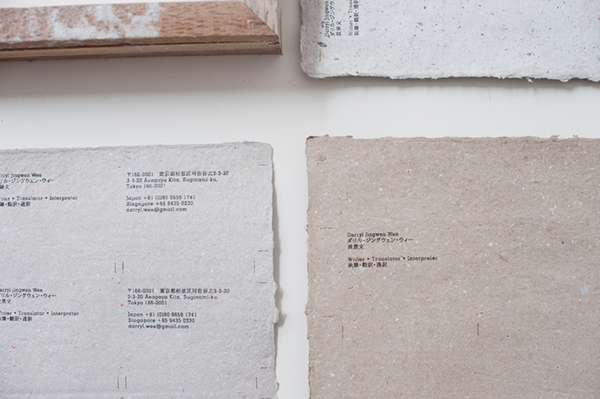 Darryl Jingwen
ダリル・ジングウ
黄景文
Writer • Transl
執筆・翻訳・通訳
rryl Jingwen Wee
リル・ジングウェン・ウィー
景文
riter • Translator • Interpreter
筆・翻訳・通訳
〒166-0001 東京都杉並区阿佐谷北3-3-20
3-3-20 Asagaya Kita, Suginami-ku,
Tokyo 166-0001
Japan +81 (0)80 6656 1741
Singapore +65 9435 0230
darryl.wee@gmail.com
rryl Jingwen Wee
リル・ジングウェン・ウィー
景文
riter • Translator • Interpreter
筆・翻訳・通訳
〒166-0001 東京都杉並区阿佐谷北3-3-20
3-3-20 Asagaya Kita, Suginami-ku,
Tokyo 166-0001
Japan +81 (0)80 6656 1741
Singapore +65 9435 0230
darryl.wee@gmail.com
Darryl Jingwen Wee
ダリル・ジングウェン・ウィー
黄景文
Writer • Translator • Interpreter
執筆・翻訳・通訳